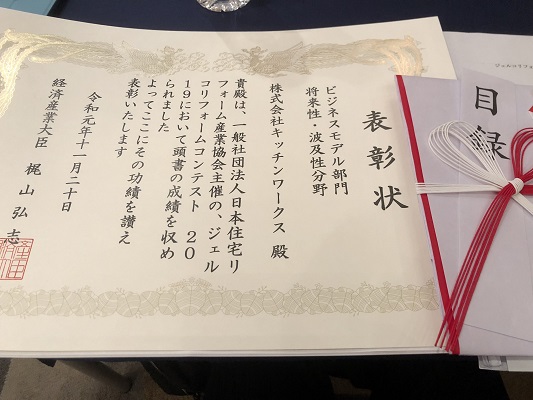 表彰状
ビジネスモデル部門
将来性・波及性分野
株式会社キッチンワークス 殿
貴殿は、一般社団法人日本住宅リ
フォーム産業協会主催の、ジェル
コリフォームコンテスト 20
19において頭書の成績を収め
られました
よってここにその功績を讃え
表彰いたします
令和元年十一月二十日
経済産業大臣 梶山弘志
目録